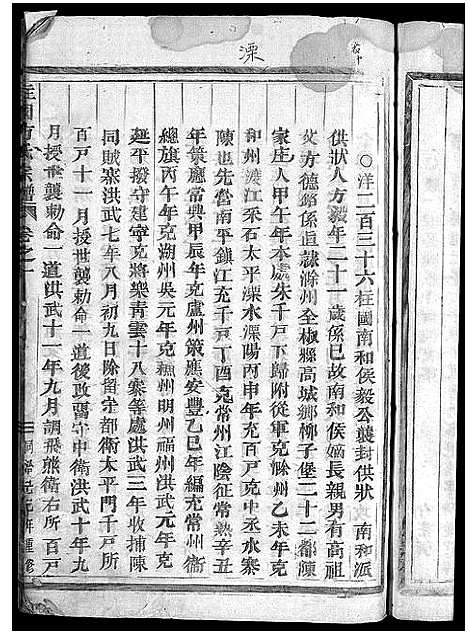 溧
○洋二百三十六柱國南和侯毅公襲封供狀 南和派
供狀人方毅年二十一歲係已故南和侯嫡長親男有高祖
父方德銘係直隸滁州全椒縣高城鄉柳子堡二十二都陳
家庄人甲午年本處朱千戶下歸附從軍克滁州乙未年克
和州渡江采石太平溧水溧陽丙申年充百戶克中丞水寨
陳也先營南平鎮江充千戶丁酉克常州江陰征常熟辛丑
年策應常興甲辰年克盧州策應安豐乙巳年編充常州衛
總旗丙午年克湖州吳元年克蘇州明州福州洪武元年克
延平撥守建寧克將樂青雲十八寨等處洪武三年收捕陳
同賊寨洪武七年八月初九日除留守部衛太平門千戶所
百戶十一月授世襲勅命一道後改留守中衛洪武十年九
月授世襲勅命一道洪武十一年九月調飛熊衛右所百戶
宗譜 卷之一
同治元年重修